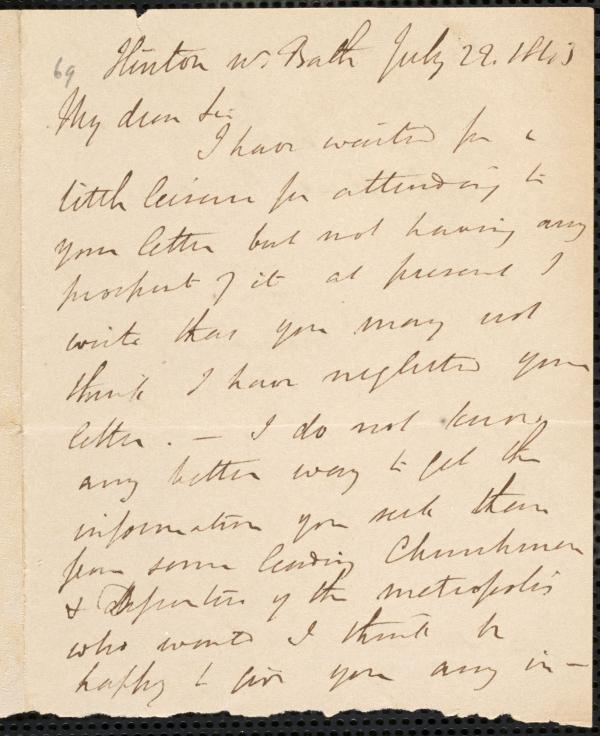 69
Hinton nr. Bath July 22. 1843
My dear Sir
I have waited for a
little leisure for attending to
your letter but not having any
prospect of it at present I
write that you may not
think I have neglected your
letter. — I do not know
any better way to get the
information you seek than
from some leading Churchmen
& Dissenters of the metropolis
who would I think be
happy to give you any in-